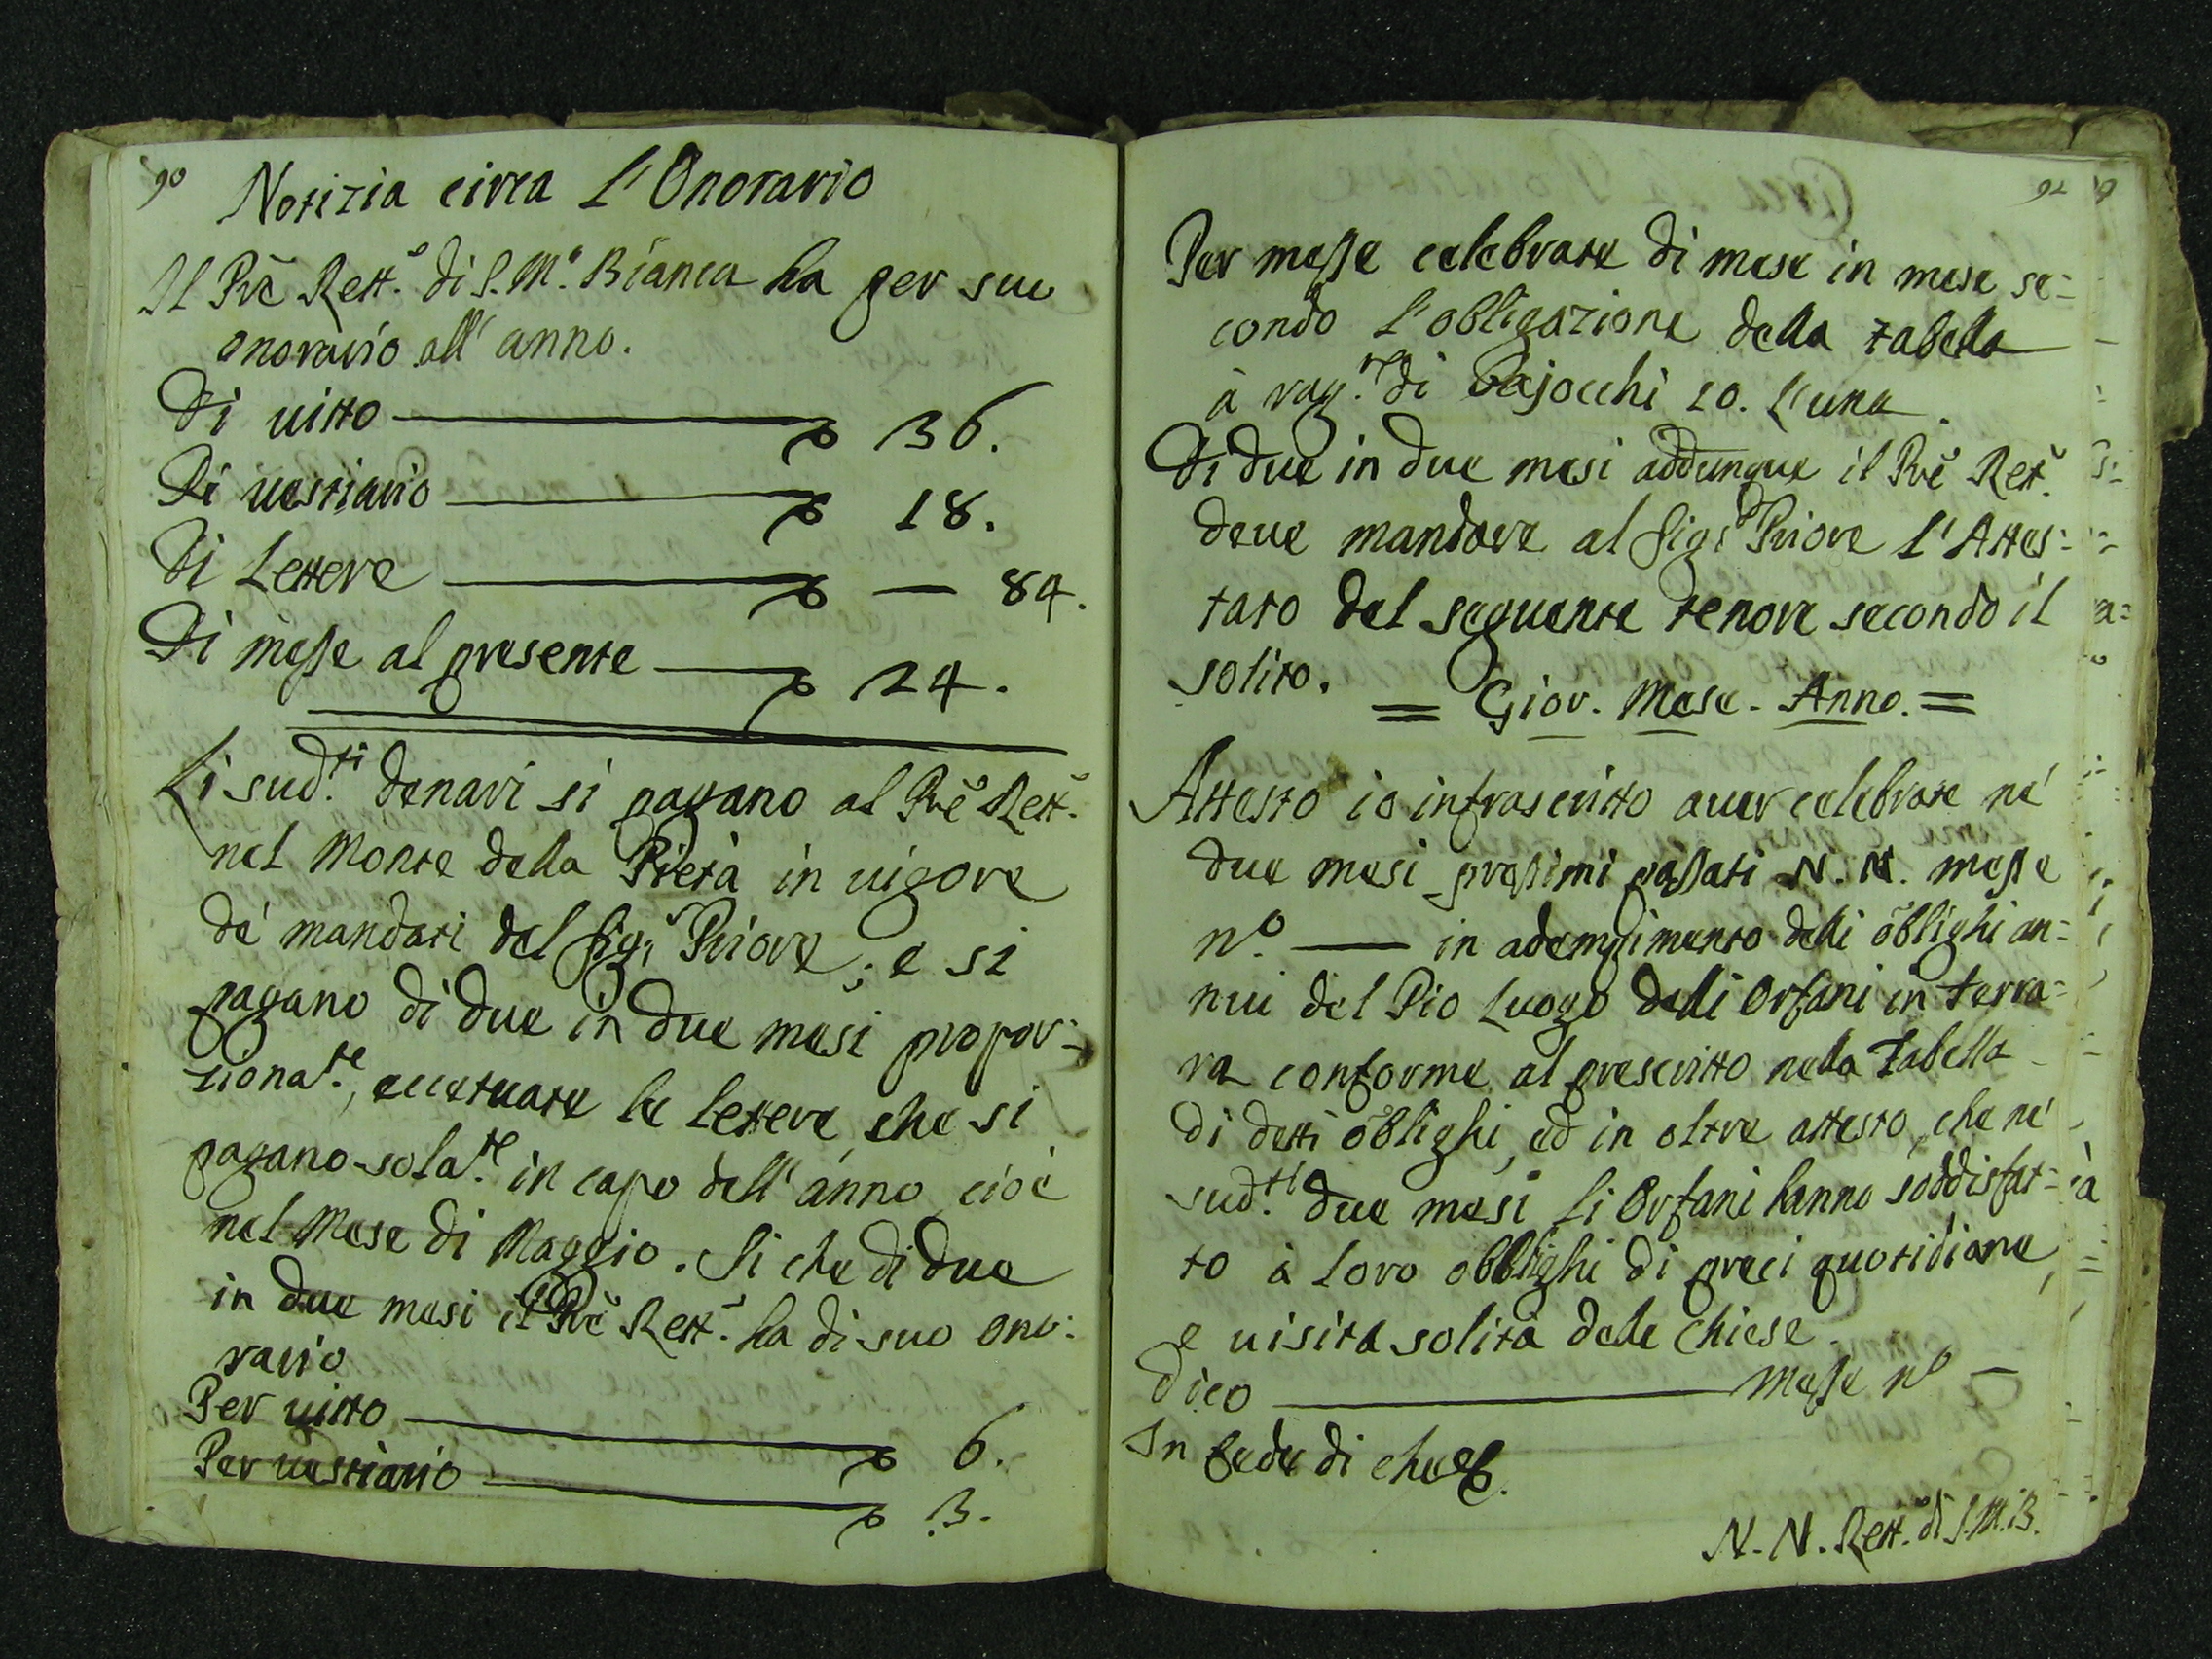 90
Notizia circa L'Onorario
Il Prē Rett.e di S. M.a Bianca ha per suo
onorario all' anno.
Di uitto — 36.
Di uestiario — 18.
Di Lettere — — 84.
Di messe al presente — 24.
Li sud.ti denari si pagano al Prē Rett.e
nel Monte della Pietà in uigore
dè mandati del Sig.r Priore; e si
pagano di due in due mesi propor=
ziona.te, eccetuate le lettere, che si
pagano sola.te in capo dell' anno, cioè
nel Mese di Maggio. Si che di due
in due mesi il Prē Rett.e ha di suo ono=
rario
Per uitto — 6.
Per uestiario — 3.
91
Per messe celebrate di mese in mese se=
condo l'obligazione della tabella
à rag.ne di Bajocchi 20. l'una.
Di due in due mesi addunque il Prē Rett.e
deue mandare al Sig.r Priore l'Attes=
tato del seguente tenore secondo il
solito.
= Gior. Mese. Anno. =
Attesto io infrascritto auer celebrate nè
due mesi prossimi passati N. N. messe
n.o — in adempimento delli oblighi an=
nui del Pio Luogo delli Orfani in ferra=
ra conforme al prescritto nella Tabella
di detti oblighi, ed in oltre attesto, che nè
sud.ti due mesi li Orfani hanno soddisfat=
to à loro obblighi di preci quotidiane,
e uisita solita delle Chiese.
Dico — Messe n.o —
In fede di che &.
N. N. Rett.e di S. M. B.